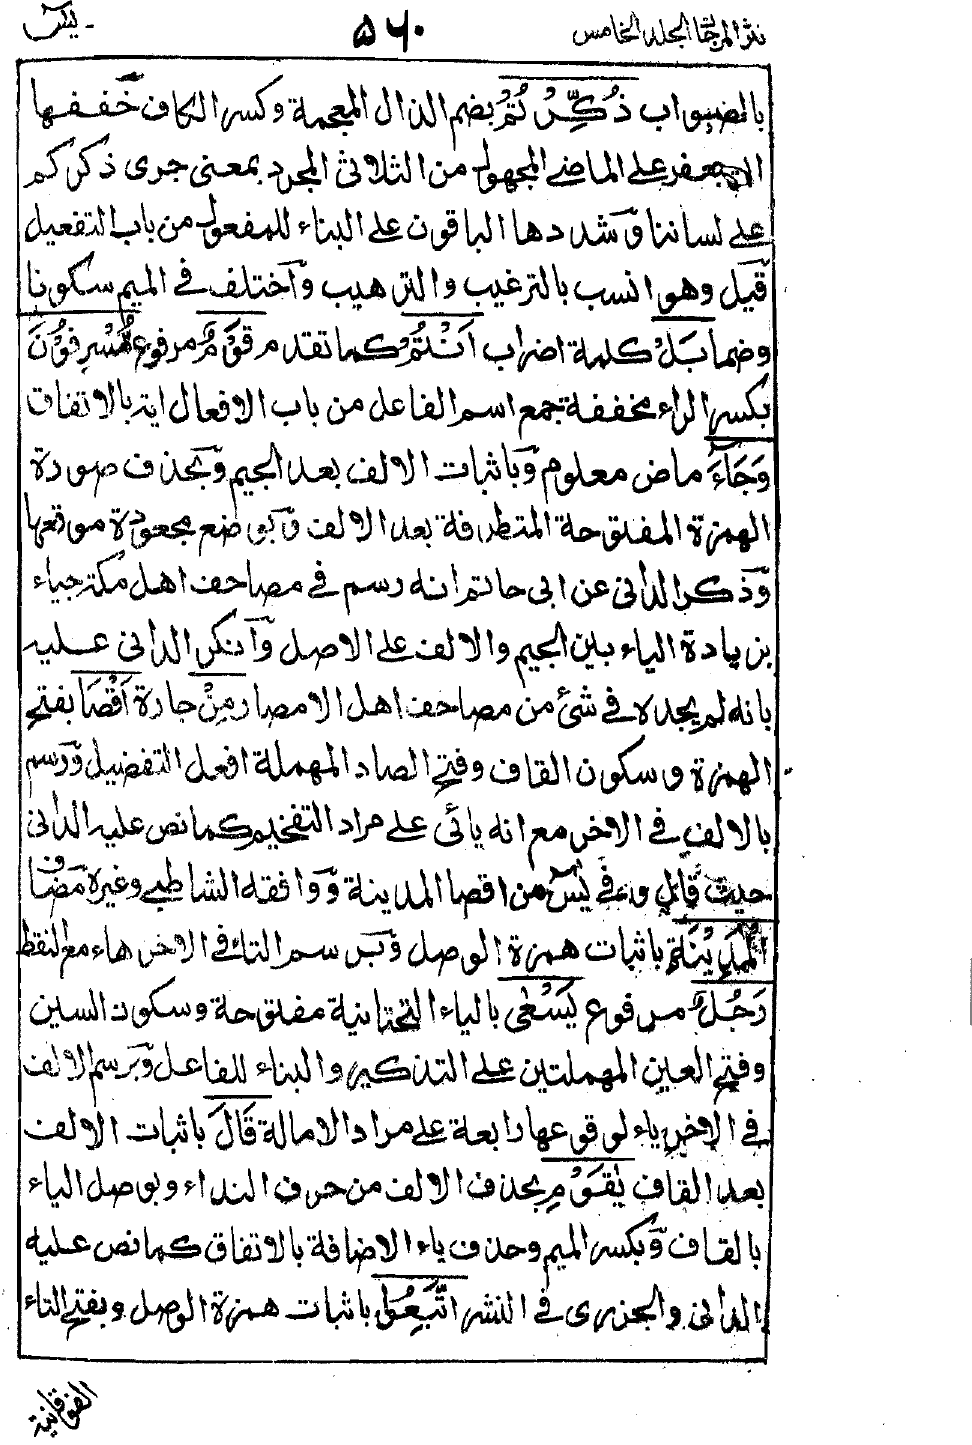 نثر المرجان الجلد الخامس
۵۶۰
يٰسٓ
بالصواب ذُكِّرْتُمْ بضم الذال المعجمة وكسر الكاف خففها
ابو جعفر على الماضي المجهول من الثلاثي المجرد بمعنى جرى ذكركم
على لساننا وشددها الباقون على البناء للمفعول من باب التفعيل
قيل وهو انسب بالترغيب والترهيب واختلف في الميم سكونا
وضما بَلْ كلمة اضراب اَنْتُمْ كما تقدم قَوْمٌ مرفوع مُسْرِفُوْنَ
بكسر الراء مخففة جمع اسم الفاعل من باب الافعال اية بالاتفاق
وَجَاءَ ماض معلوم وباثبات الالف بعد الجيم وبحذف صورة
الهمزة المفتوحة المتطرفة بعد الالف وبوضع مجعودة موقعها
وذكر الداني عن ابى حاتم انه رسم في مصاحف اهل مكة جياء
بزيادة الياء بين الجيم والالف على الاصل وانكر الداني عليه
بانه لم يجده في شئ من مصاحف اهل الامصار مِنْ جارة اَقْصَا بفتح
الهمزة وسكون القاف وفتح الصاد المهملة افعل التفضيل ورسم
بالالف في الاخر مع انه يائى على مراد التفخيم كما نص عليه الداني
حيث قال وفي يٰسٓ من اقصا المدينة ووافقه الشاطبي وغيره مضاف
الْمَدِيْنَةِ باثبات همزة الوصل وبرسم التاء في الاخر هاء مع النقط
رَجُلٌ مرفوع يَسْعٰى بالياء التحتانية مفتوحة وسكون السين
وفتح العين المهملتين على التذكير والبناء للفاعل وبرسم الالف
في الاخر ياء لوقوعها رابعة على مراد الامالة قَالَ باثبات الالف
بعد القاف يٰقَوْمِ بحذف الالف من حرف النداء وبوصل الياء
بالقاف وبكسر الميم وحذف ياء الاضافة بالاتفاق كما نص عليه
الداني والجزرى في النشر اتَّبِعُوْا باثبات همزة الوصل وبفتح التاء
الفوقانية